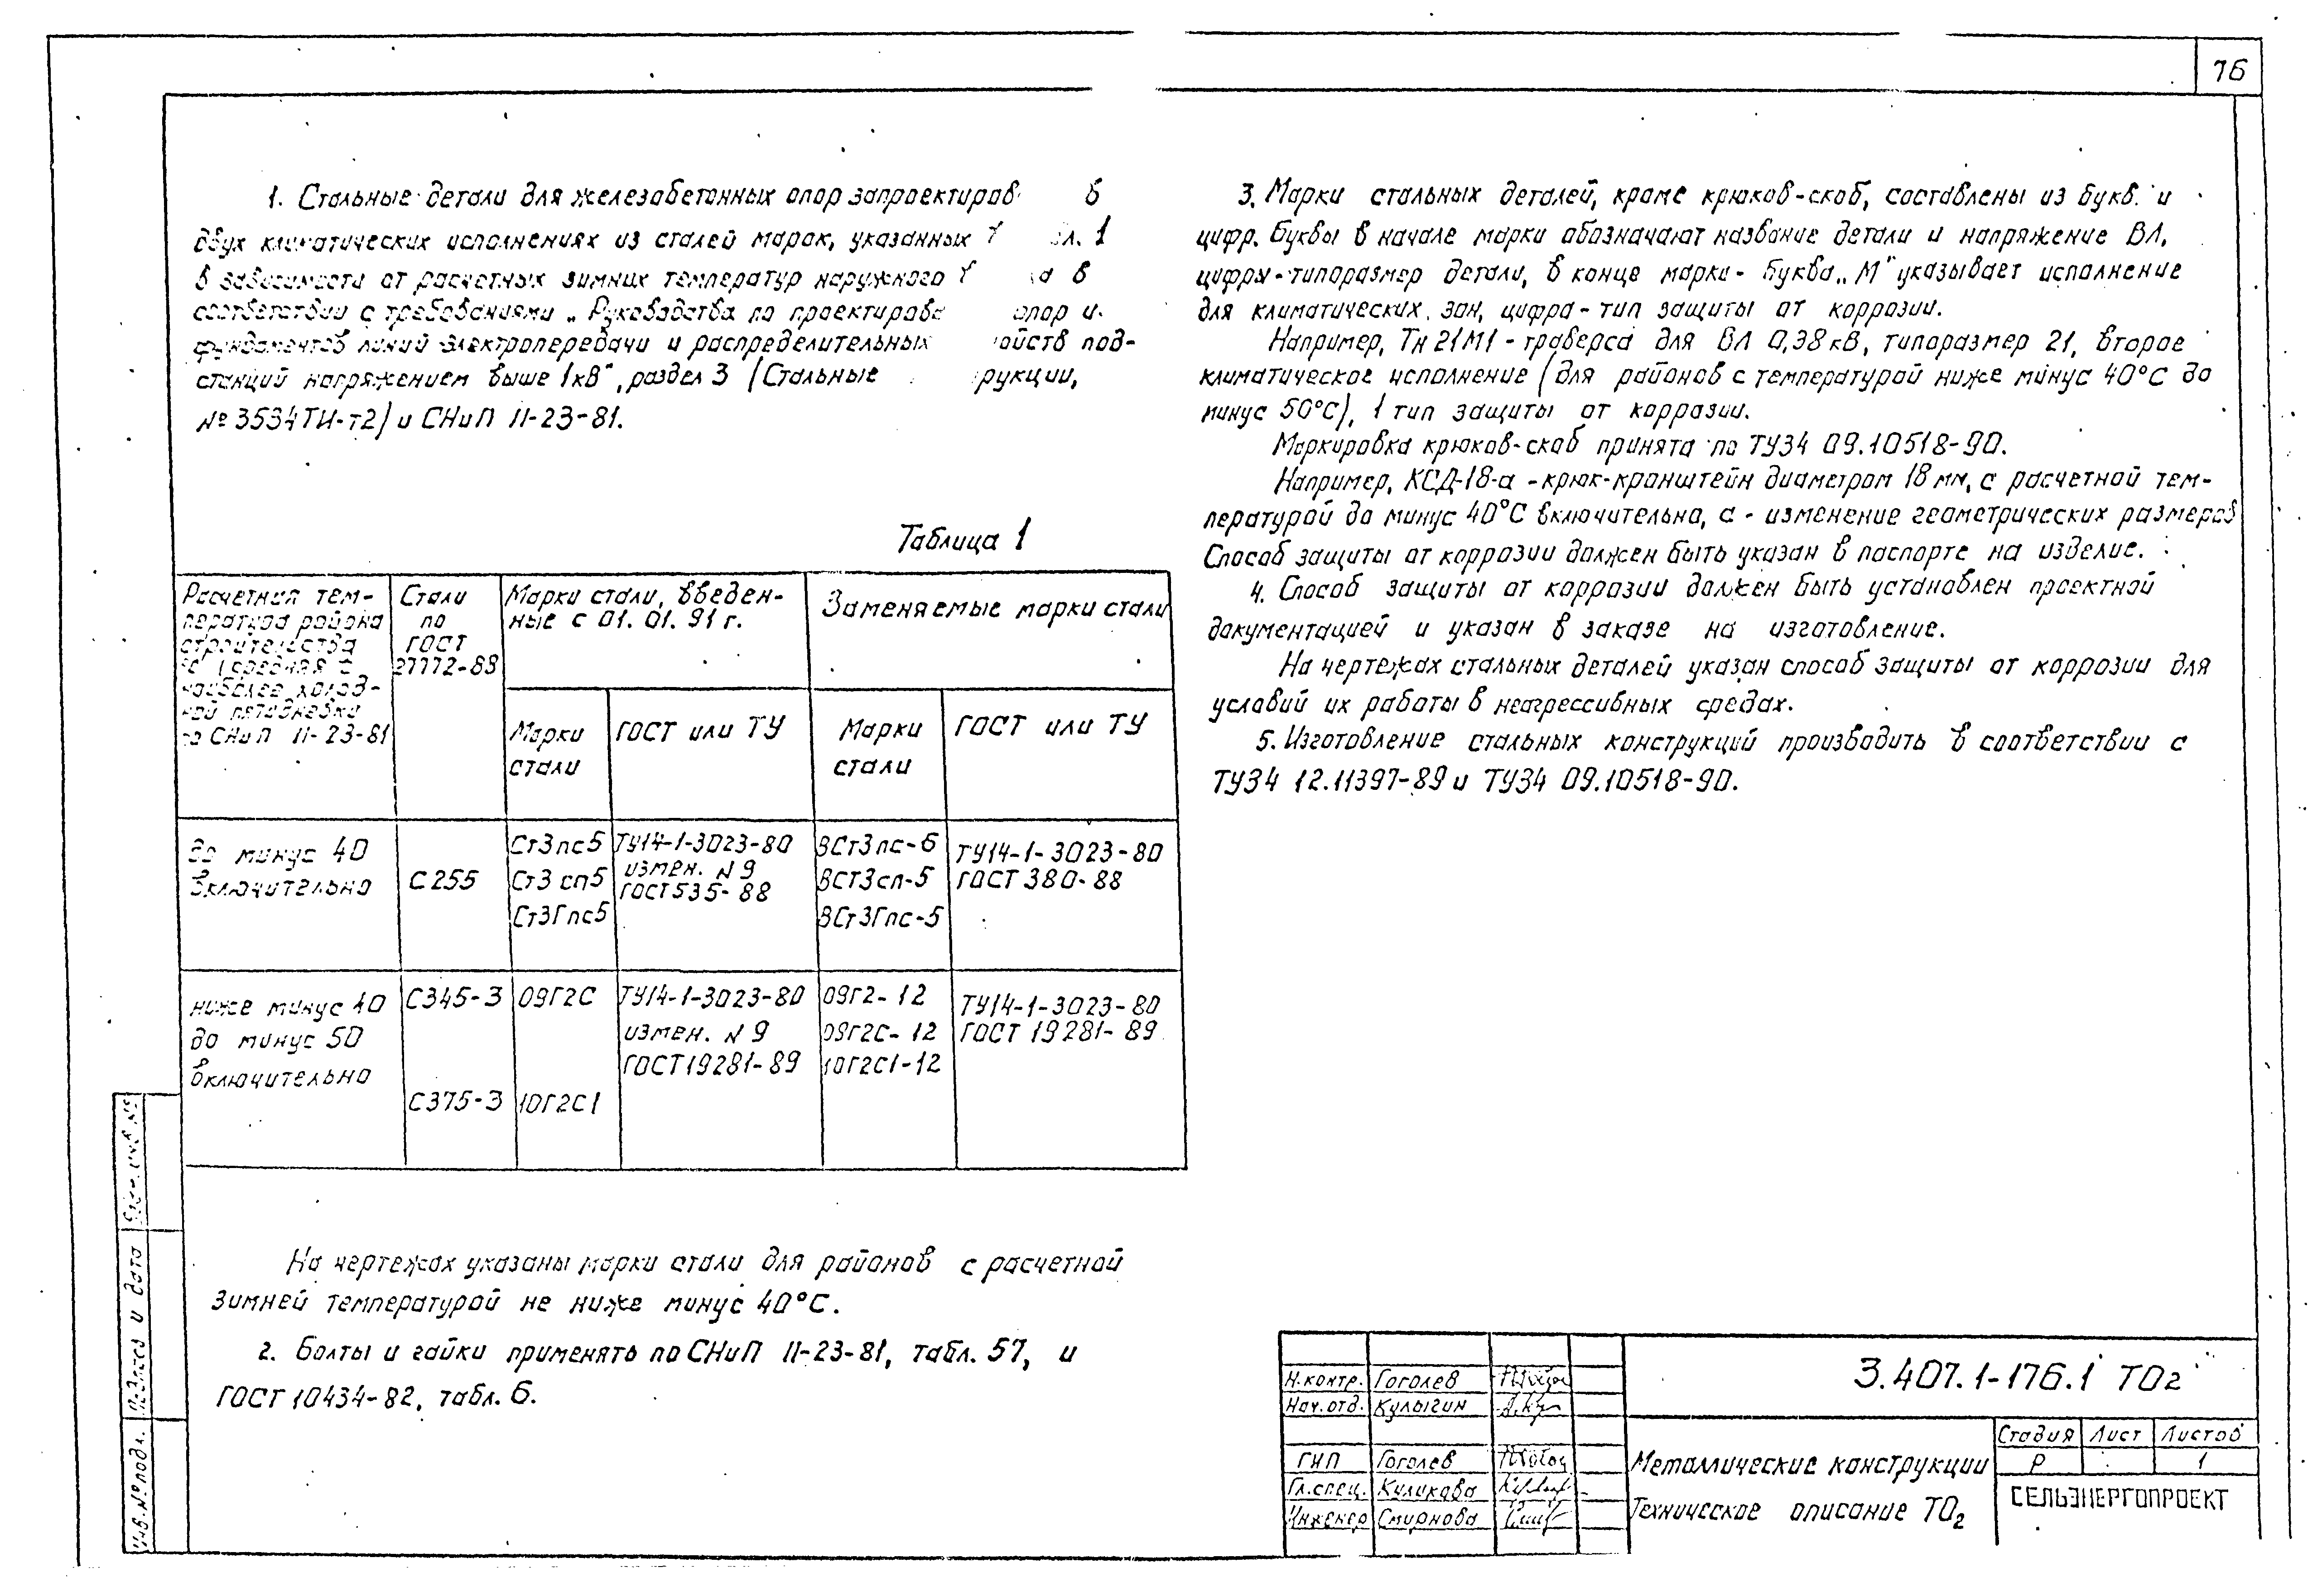 76
1. Стальные детали для железобетонных опор запроектиров в
двух климатических исполнениях из сталей марок, указанных т л. 1
в зависимости от расчетных зимних температур наружного в а в
соответствии с требованиями „Руководства по проектирова опор и
фундаментов линий электропередачи и распределительных ойств под-
станций напряжением выше 1кВ", раздел 3 (Стальные рукции,
№ 3534ТИ-т2) и СНиП II-23-81.
Таблица 1
Расчетная тем-
пература района
строительства
°С (средняя
наиболее холод-
ной пятидневки
по СНиП II-23-81
Стали
по
ГОСТ
27772-88
Марки стали, введен-
ные с 01.01.91 г.
Заменяемые марки стали
Марки
стали
ГОСТ или ТУ
Марки
стали
ГОСТ или ТУ
до минус 40
включительно
С255
Ст3пс5
Ст3сп5
Ст3Гпс5
ТУ14-1-3023-80
измен. N 9
ГОСТ535-88
ВСт3пс-6
ВСт3сп-5
ВСт3Гпс-5
ТУ14-1-3023-80
ГОСТ 380-88
ниже минус 40
до минус 50
включительно
С345-3
С375-3
09Г2С
10Г2С1
ТУ14-1-3023-80
измен. N 9
ГОСТ19281-89
09Г2-12
09Г2С-12
10Г2С1-12
ТУ14-1-3023-80
ГОСТ 19281-89
На чертежах указаны марки стали для районов с расчетной
зимней температурой не ниже минус 40°С.
2. Болты и гайки применять по СНиП II-23-81, табл. 57, и
ГОСТ 10434-82, табл. 6.
3. Марки стальных деталей, кроме крюков-скоб, составлены из букв и
цифр. Буквы в начале марки обозначают название детали и напряжение ВЛ,
цифры-типоразмер детали, в конце марки - буква „М" указывает исполнение
для климатических зон, цифра - тип защиты от коррозии.
Например, Тн21М1 - траверса для ВЛ 0,38кВ, типоразмер 21, второе
климатическое исполнение (для районов с температурой ниже минус 40°С до
минус 50°С), 1 тип защиты от коррозии.
Маркировка крюков-скоб принята по ТУ34 09.10518-90.
Например, КСД-18-а - крюк-кронштейн диаметром 18 мм, с расчетной тем-
пературой до минус 40°С включительно, а - изменение геометрических размеров
Способ защиты от коррозии должен быть указан в паспорте на изделие.
4. Способ защиты от коррозии должен быть установлен проектной
документацией и указан в заказе на изготовление.
На чертежах стальных деталей указан способ защиты от коррозии для
условий их работы в неагрессивных средах.
5. Изготовление стальных конструкций производить в соответствии с
ТУ34 12.11397-89 и ТУ34 09.10518-90.
Инв.№подл.
Подпись и дата
Н.контр. Гоголев
Нач.отд. Кулыгин
ГИП Гоголев
Гл.спец. Куликова
Инженер Смирнова
3.407.1-176.1 ТО2
Металлические конструкции
Техническое описание ТО2
Стадия Лист Листов
Р 1
СЕЛЬЭНЕРГОПРОЕКТ